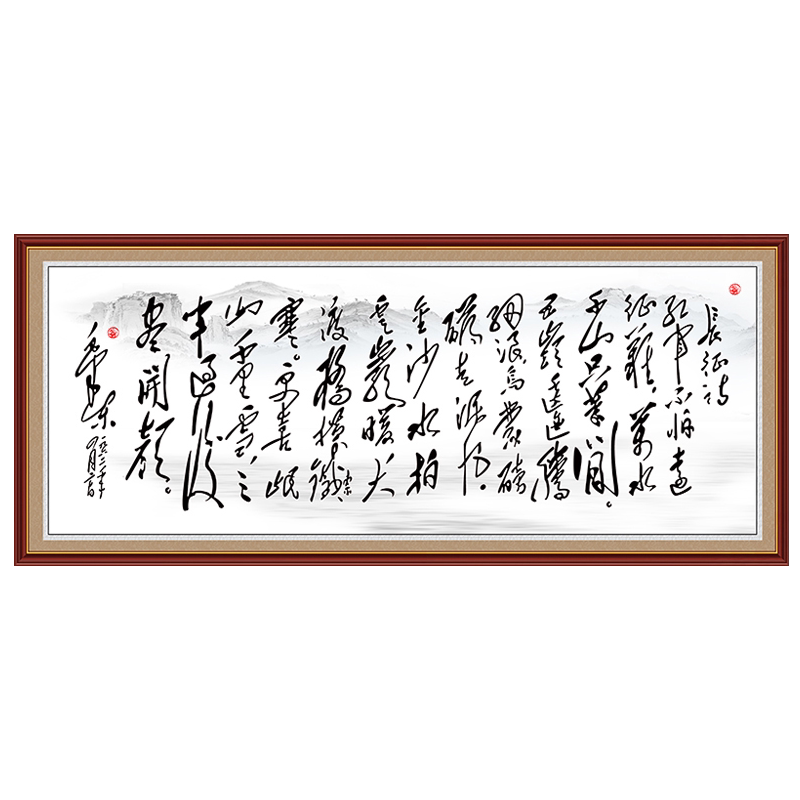 長征詩
紅軍不怕遠
征難，萬水
千山只等閒。
五嶺逶迤騰
細浪，烏蒙磅
礴走泥丸。
金沙水拍
雲巖暖，大
渡橋橫鐵索
寒。更喜岷
山千里雪，三
軍過後
盡開顏。
毛澤東